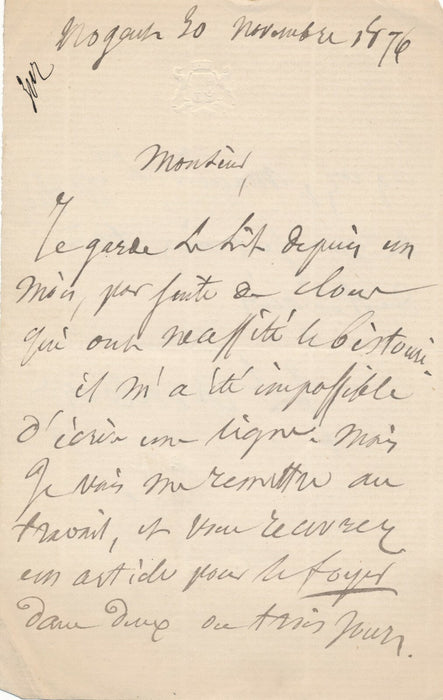 Nogent 30 Novembre 1876
Monsieur,
Je garde le lit depuis un
mois, par suite de clous
qui ont necessité le bistouri.
il m'a été impossible
d'écrire une ligne. Mais
je vais me remettre au
travail, et vous recevrez
un article pour le foyer
dans deux ou trois jours.